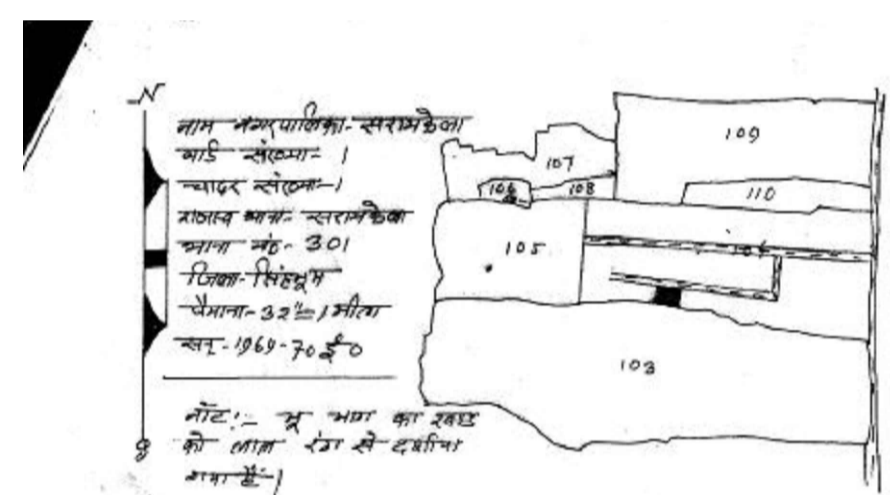 N
नाम नगरपालिका- सरायकेला
वार्ड संख्या- 1
चादर संख्या-1
राजस्व थाना- सरायकेला
थाना नं०- 301
जिला- सिंहभूम
पैमाना- 32"= 1 मील
सन्-1969-70 ई०
नोट:- भू भाग का खण्ड
को लाल रंग से दर्शाया
गया है।
109
107
106
108
110
105
103